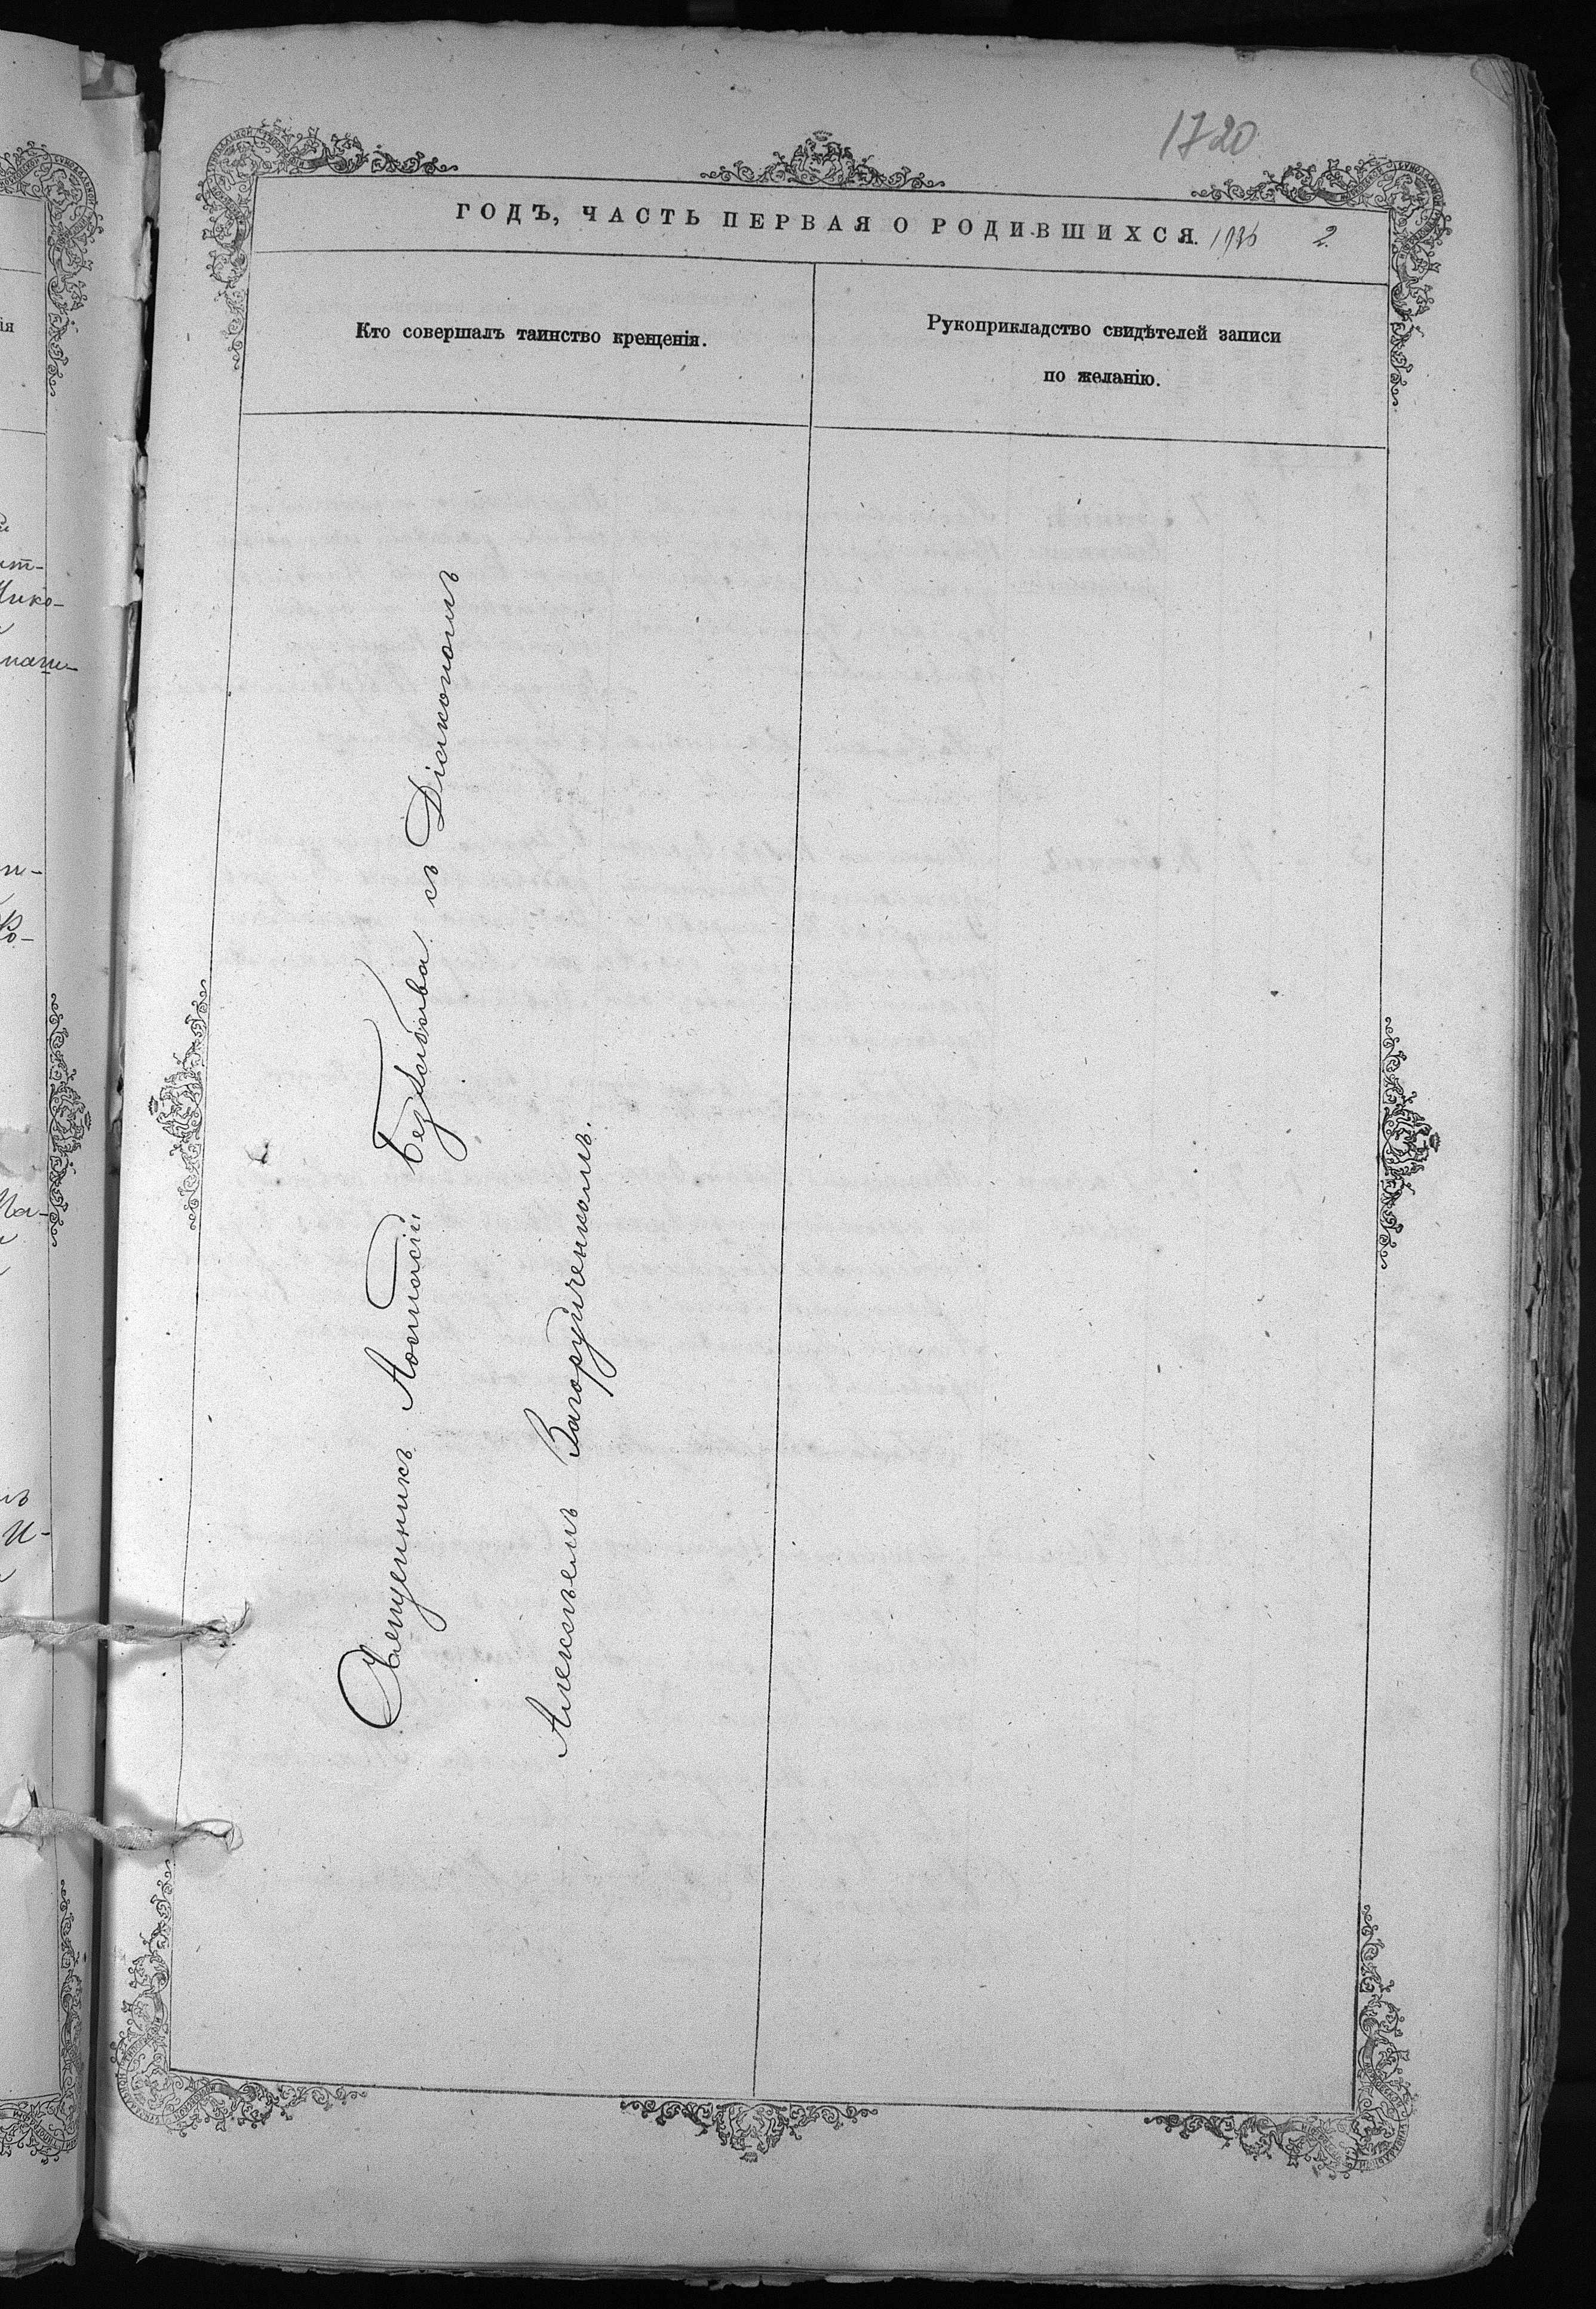 1720
ГОДЪ, ЧАСТЬ ПЕРВАЯ О РОДИВШИХСЯ. 2
Кто совершалъ таинство крещенія.
Рукоприкладство свидѣтелей записи
по желанію.
Священникъ с Діакономъ
Алексѣемъ Вагоруйченкомъ.